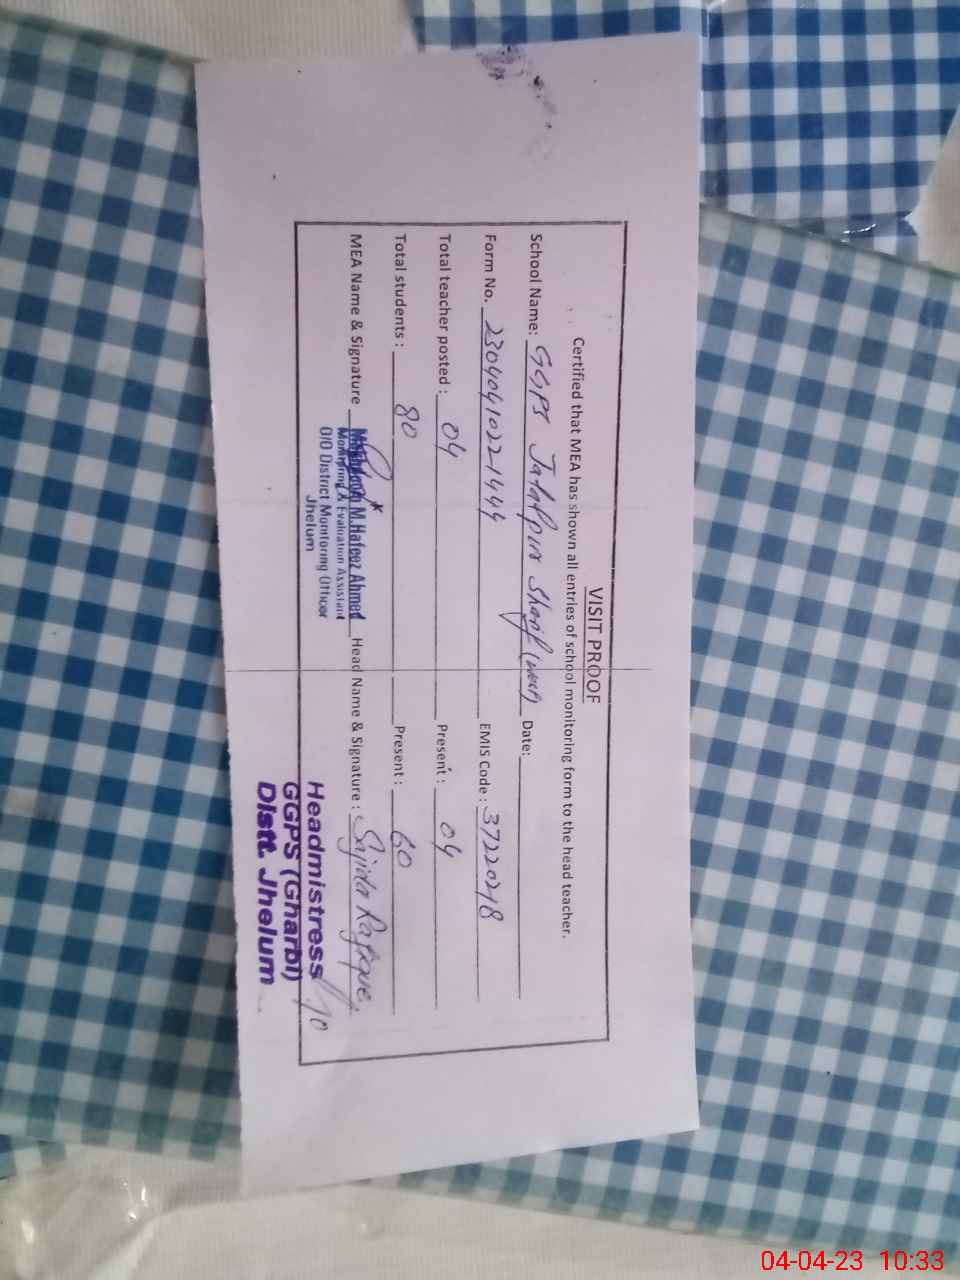 VISIT PROOF
Certified that MEA has shown all entries of school monitoring form to the head teacher.
School Name: GGPS Jalalpur Sharif (West) Date:
Form No. 23040410221444 EMIS Code : 37220218
Total teacher posted : 04 Present : 04
Total students : 80 Present : 60
MEA Name & Signature M.Hafeez Ahmed Head Name & Signature : Sajida Rafique
Monitoring & Evaluation Assistant
O/O District Monitoring Officer
Jhelum
Headmistress
GGPS (Gharbi)
Distt. Jhelum
04-04-23 10:33